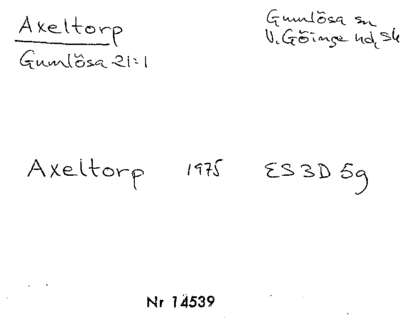 Axeltorp
Gumlösa 21:1
Gumlösa sn
V. Göinge hd, Sk
Axeltorp 1975 ES 3D 5g
Nr 14539